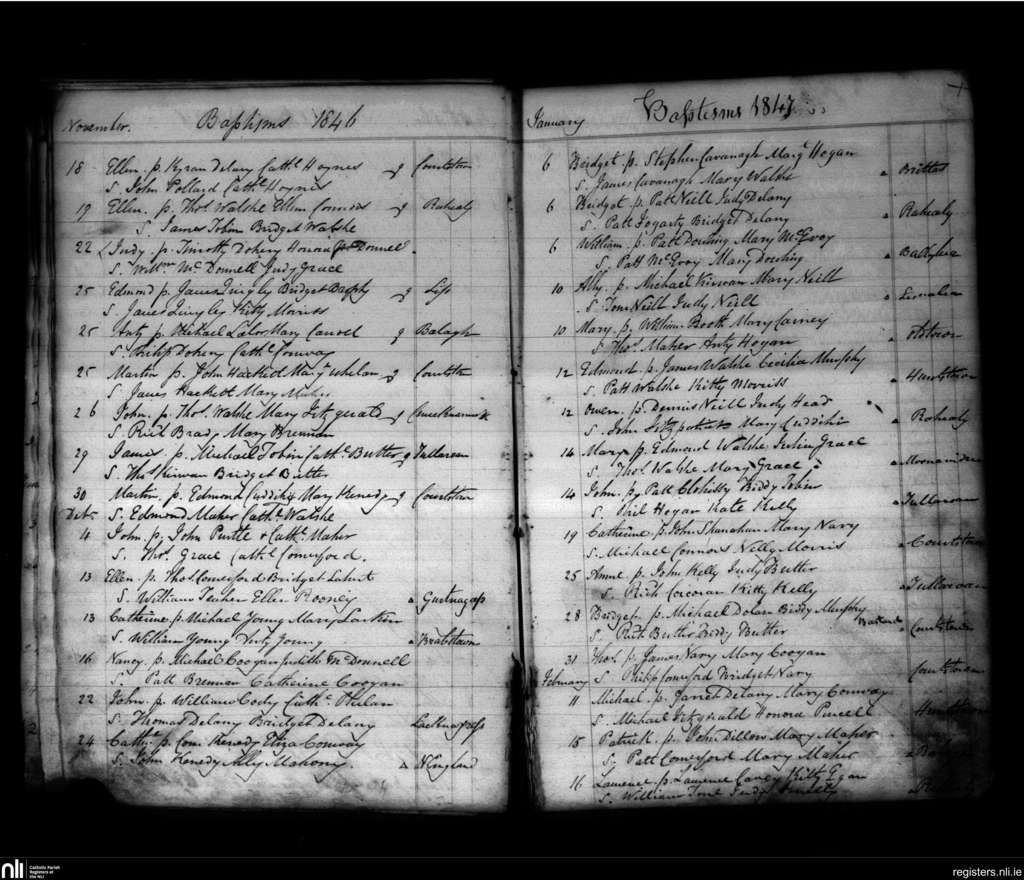 November. Baptisms 1846
18 Ellen. p. Kyran Delany Cath.e Hoynes of Courtstown
S. John Pollard Cath.e Hoynes
19 Ellen. p. Tho.s Walshe Ellen Connors of Rahealy
S. James Tobin Bridget Walshe
22 Judy. p. Timothy Dohery Honour Donnell
S. Will.m McDonnell Judy Grace
25 Edmond p. James Bridget of
S. James Kitty Morriss
25 Anty p. Michael Lalor Mary Carroll of Balagh
S. Philip Dohery Cath.e Conway
25 Martin p. John Hackett Marg.t Whelan of
S. James Hackett Mary Maher
26 John. p. Tho.s Walshe Mary of
S. Rich.d Brady Mary Brennan
29 James. p. Michael Tobin Cath.e Butler of Tullaroan
S. Tho.s Kirwan Bridget Butler
30 Martin. p. Edmond Cuddihy Mary Kenedy of Courtstown
S. Edmond Maher Cath.e Walshe
4 John. p. John Purtle & Cath.e Maher
S. Tho.s Grace Cath.e Comerford.
13 Ellen. p. Tho.s Comerford Bridget
S. William Teehan Ellen Rooney Gurtnagap
13 Catherine p. Michael Young Mary Larkin
S. William Young Anty Young Brabstown
16 Nancy. p. Michael Coogan Judith McDonnell
S. Patt Brennan Catherine Coogan
22 John. p. William Cody Cath.e Phelan
S. Thomas Delany Bridget Delany Lacknagapp
24 Cath.e p. Con. Kenedy Eliza Conway
S. John Kenedy Ally Mahony. N England
January Baptisms 1847
6 Bridget. p. Stephen Cavanagh Marg.t Hogan Brittas
S. James Cavanagh Mary Walshe
6 Bridget p. Patt Neill Judy Delany Rahealy
S. Patt Fogarty Bridget Delany
6 William. p. Patt Dowling Mary McEvoy
S. Patt McEvoy Mary Dowling
10 Ally. p. Michael Kirwan Mary Neill
S. Tom Neill Judy Neill
10 Mary. p. William Booth Mary Oldtown
S. Tho.s Maher Anty Hogan
12 Edmond. p. James Walshe Cecilia Murphy Huntstown
S. Patt Walshe Kitty Morriss
12 Owen. p. Dennis Neill Judy Head Rahealy
S. John Fitzpatrick Mary Cuddihi
14 Mary. p. Edmond Walshe Julia Grace
S. Tho.s Walshe Mary Grace
14 John. p. Patt Biddy Tobin Tullaroan
S. Phil Hogan Kate Kelly
19 Catherine. p. John Shanahan Mary Nary Courtstown
S. Michael Connors Nelly Morris
25 Anne. p. John Kelly Judy Butler Tullaroan
S. Rich.d Corcoran Kitty Kelly
28 Bridget. p. Michael Dolan Biddy Murphy Courtstown
S. Rich.d Butler Biddy Butler
31 Tho.s p. James Nary Mary Coogan Courtstown
S. Philip Comerford Bridget Nary
February
11 Michael. p. Garret Delany Mary Conway
S. Michael Fitzgerald Honora Purcell
15 Patrick. p. John Dillon Mary Maher
S. Patt Comerford Mary Maher
16 Laurence. p. Laurence Carey Kitty Egan
S. William
nli Catholic Parish
Registers at
the NLI
registers.nli.ie